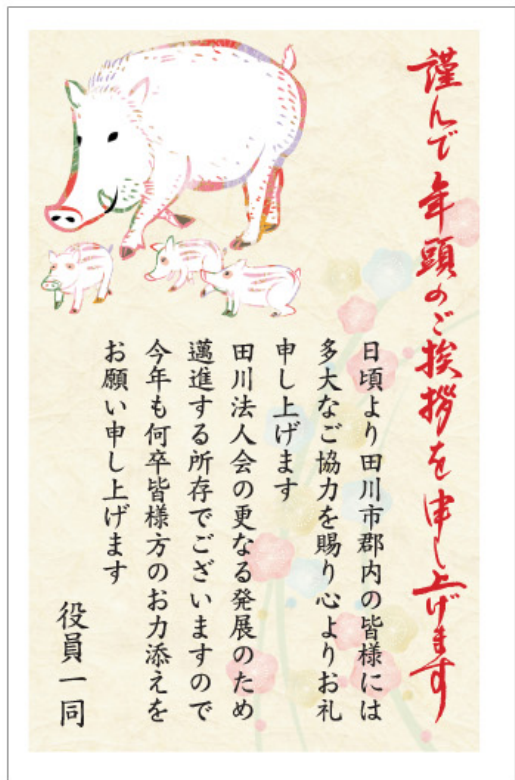 謹んで年頭のご挨拶を申し上げます
日頃より田川市郡内の皆様には
多大なご協力を賜り心よりお礼
申し上げます
田川法人会の更なる発展のため
邁進する所存でございますので
今年も何卒皆様方のお力添えを
お願い申し上げます
役員一同